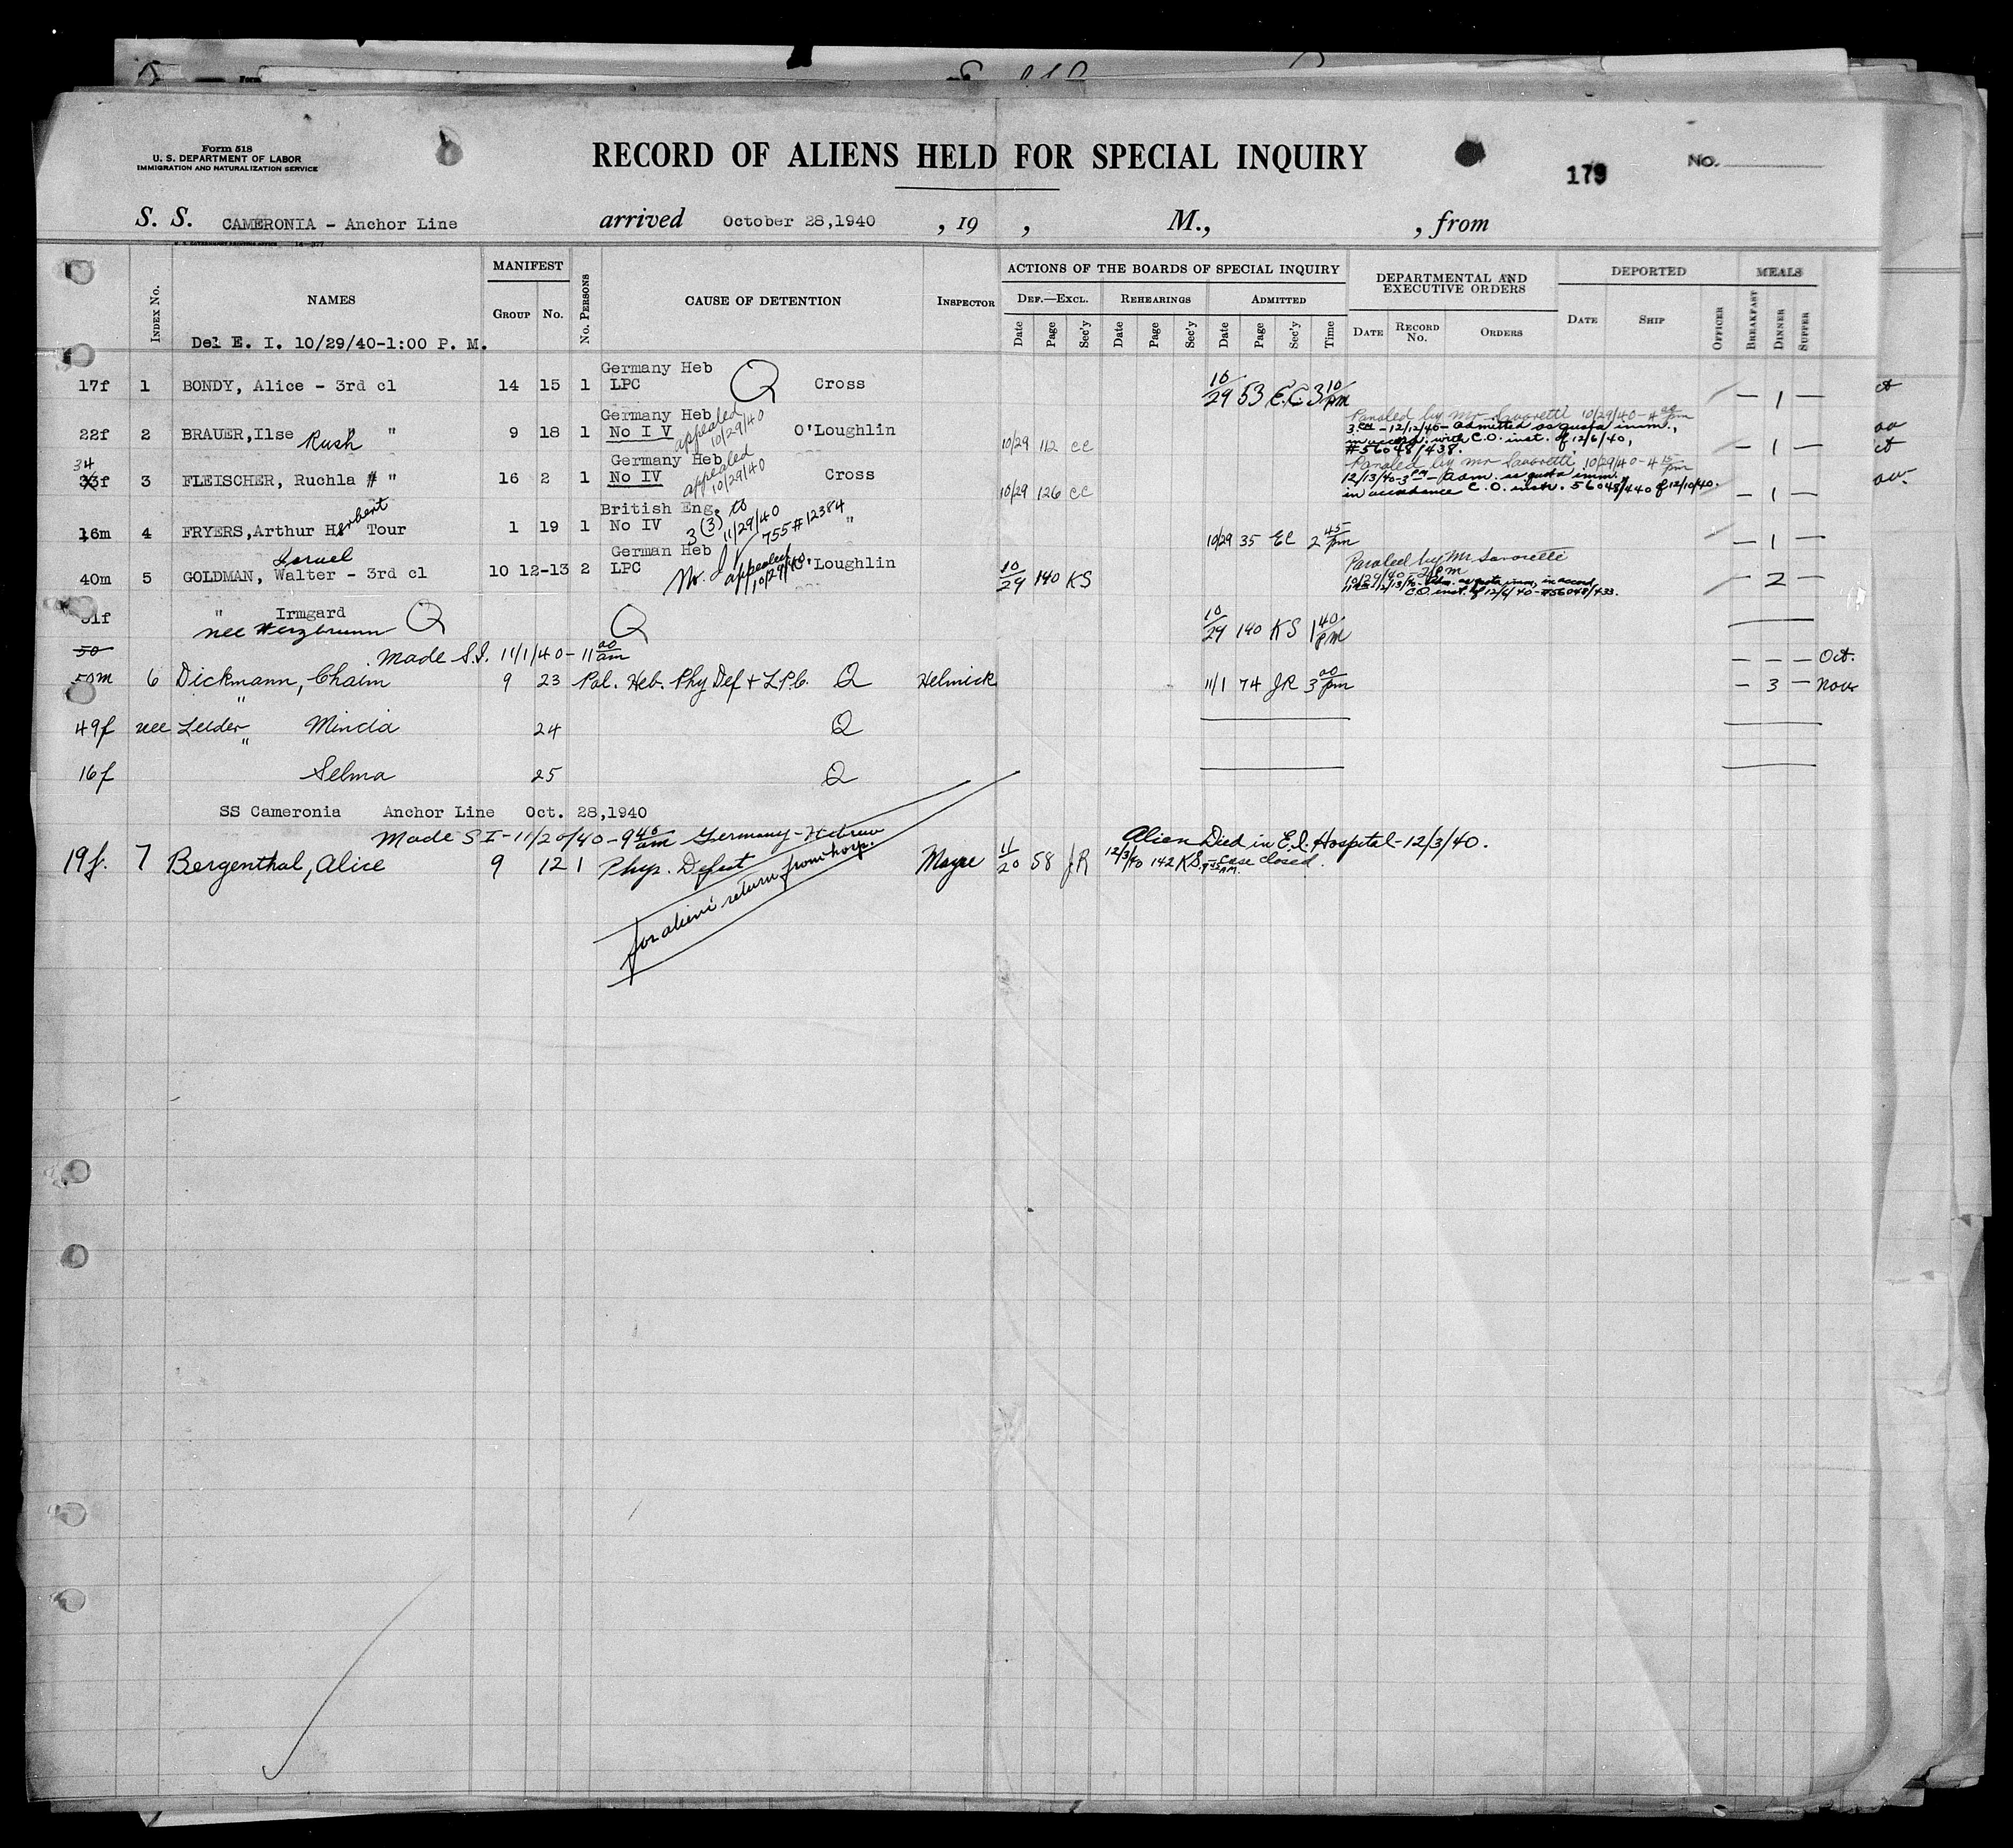 Form 518
U. S. DEPARTMENT OF LABOR
IMMIGRATION AND NATURALIZATION SERVICE
RECORD OF ALIENS HELD FOR SPECIAL INQUIRY
179
No.
S. S. CAMERONIA - Anchor Line arrived October 28,1940 , 19 , M., , from
INDEX No. NAMES MANIFEST GROUP No. No. PERSONS CAUSE OF DETENTION INSPECTOR
ACTIONS OF THE BOARDS OF SPECIAL INQUIRY
DEF.—EXCL. REHEARINGS ADMITTED
Date Page Sec'y Date Page Sec'y Date Page Sec'y Time
DEPARTMENTAL AND EXECUTIVE ORDERS
DATE RECORD No. ORDERS
DEPORTED
DATE SHIP OFFICER
MEALS
BREAKFAST DINNER SUPPER
Del E. I. 10/29/40-1:00 P. M.
Germany Heb
17f 1 BONDY, Alice - 3rd cl 14 15 1 LPC Q Cross 10/29 53 E.C. 3 10 PM — 1 —
Germany Heb appealed 10/29/40
22f 2 BRAUER,Ilse " " 9 18 1 No I V O'Loughlin 10/29 112 cc — 1 —
Ruth
Paroled by Mr. Savoretti 10/29/40-4 00 pm
3 PM - 12/12/40- admitted as quota imm.,
in accord. with C.O. inst. of 12/6/40,
#56048/438.
Germany Heb appealed 10/29/40
34
33f 3 FLEISCHER, Ruchla # " 16 2 1 No IV Cross 10/29 126 cc — 1 —
Paroled by Mr Savoretti, 10/29/40-4 15 pm
12/13/40-3 PM - Adm. as quota imm.
in accordance C.O. instr. 56048/440 of 12/10/40.
British Eng. 3 (3) to 11/29/40 755#12384
16m 4 FRYERS,Arthur Herbert Tour 1 19 1 No IV " 10/29 35 EC 2 45 pm — 1 —
Israel
German Heb
40m 5 GOLDMAN, Walter - 3rd cl 10 12-13 2 LPC No. IV appealed 10/29/40. O'Loughlin 10/29 140 KS — 2 —
Paroled by Mr. Savoretti
10/29/40-
C.O. inst. of 12/6/40-#56048/433.
31f " Irmgard Q Q 10/29 140 KS 1 40 PM
nee Herzbrunn
50
Made S.I. 11/1/40-11 00 am — — — Oct.
50m 6 Dickmann, Chaim 9 23 Pol. Heb. Phy Def + L.P.C. Q Helmick 11/1 74 JR 3 00 pm — 3 — Nov
49f nee Leider " Mincia 24 Q
16f " Selma 25 Q
SS Cameronia Anchor Line Oct. 28,1940
Made S I-11/20/40-9 40 am Germany-Hebrew
19f. 7 Bergenthal, Alice 9 12 1 Phys. Defect 11/20 58 JR
for aliens return from hosp.
Alien Died in E.I. Hospital-12/3/40.
12/3/40 142 KS - case closed.